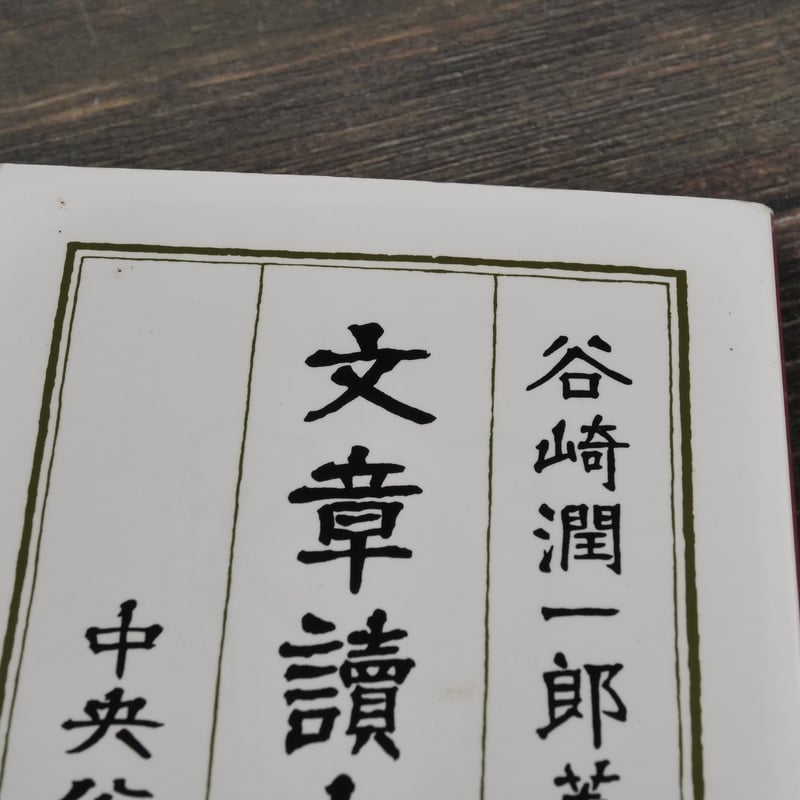 谷崎潤一郎著
文章讀
中央